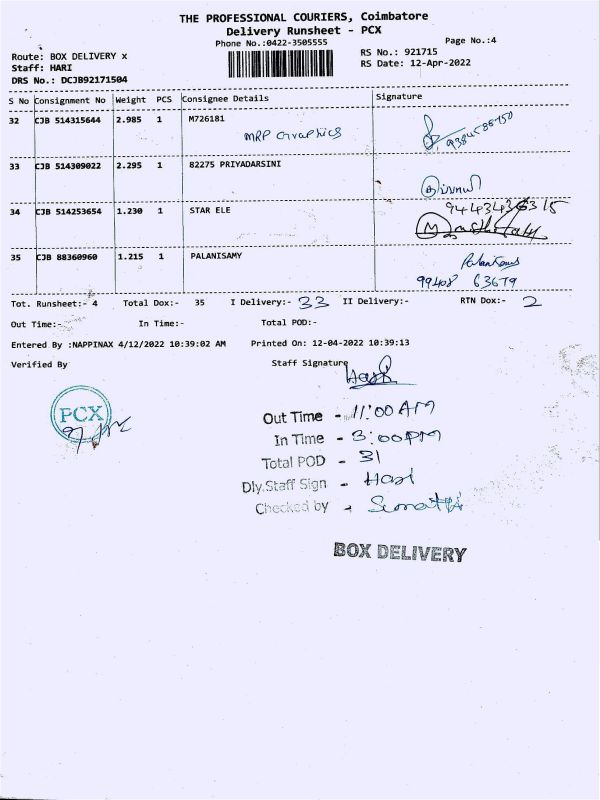 THE PROFESSIONAL COURIERS, Coimbatore
Delivery Runsheet - PCX
Phone No.:0422-3505555
Page No.:4
Route: BOX DELIVERY x
RS No.: 921715
Staff: HARI
RS Date: 12-Apr-2022
DRS No.: DCJB92171504
S No Consignment No Weight PCS Consignee Details Signature
32 CJB 514315644 2.985 1 M726181
MRP Graphics
33 CJB 514309022 2.295 1 82275 PRIYADARSINI
34 CJB 514253654 1.230 1 STAR ELE
35 CJB 88360960 1.215 1 PALANISAMY
99408 63679
Tot. Runsheet:- 4 Total Dox:- 35 I Delivery:- 33 II Delivery:- RTN Dox:- 2
Out Time:- In Time:- Total POD:-
Entered By :NAPPINAX 4/12/2022 10:39:02 AM Printed On: 12-04-2022 10:39:13
Verified By Staff Signature
PCX
Out Time - 11:00 AM
In Time - 3:00PM
Total POD - 31
Dly.Staff Sign - Hari
Checked by -
BOX DELIVERY